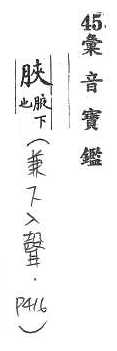 45.彙音寶鑑
脥 腋下也
(兼下入聲.P416)